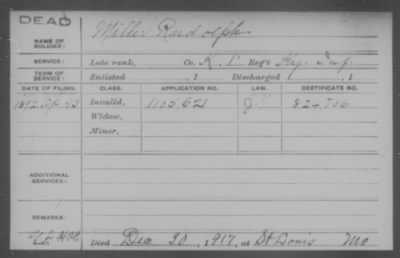 DEAD
NAME OF SOLDIER: Miller Randolph
SERVICE: Late rank, Co. A, 1 Reg't Ky. Inf.
TERM OF SERVICE: Enlisted , 1 Discharged , 1
DATE OF FILING. CLASS. APPLICATION NO. LAW. CERTIFICATE NO.
1892 Ap 13 Invalid, 1105.621 824.706
Widow,
Minor,
ADDITIONAL SERVICES:
REMARKS:
Died Dec 30, 1917, at St Louis Mo